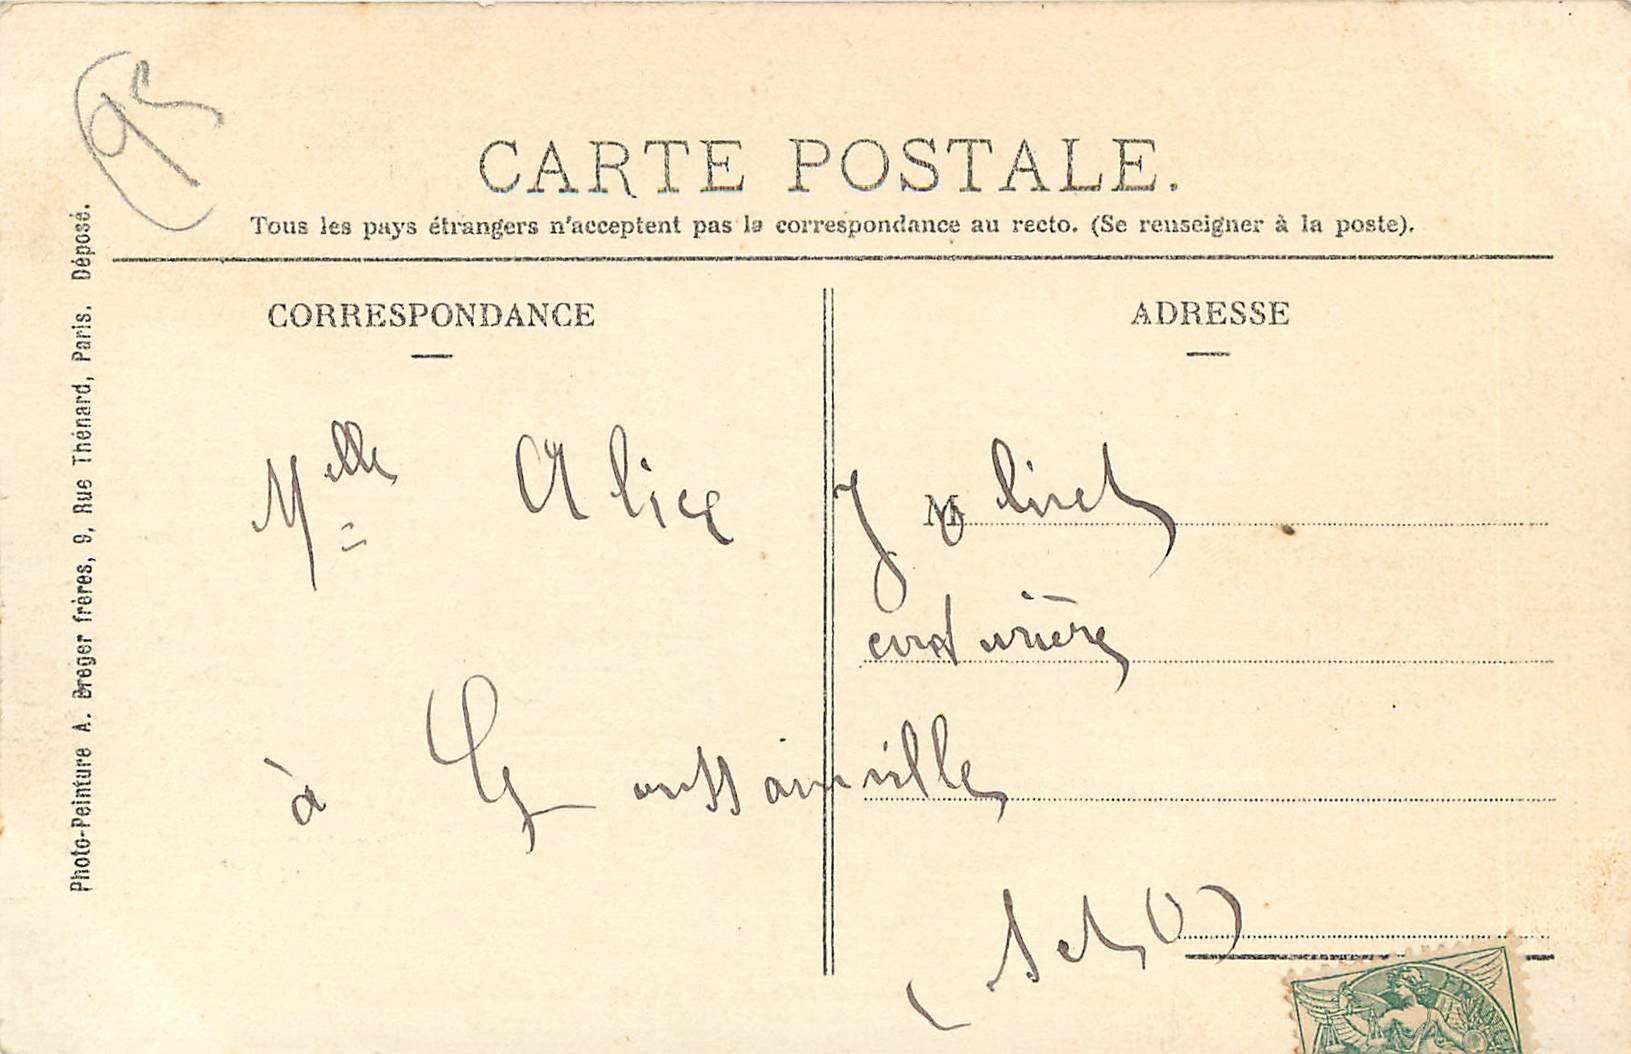 95
CARTE POSTALE.
Tous les pays étrangers n'acceptent pas la correspondance au recto. (Se renseigner à la poste).
CORRESPONDANCE
ADRESSE
Photo-Peinture A. Breger frères, 9, Rue Thénard, Paris. Déposé.
M
Melle Alice Jolivet
couturière
à Goussainville
(S et O)
FRANÇAISE